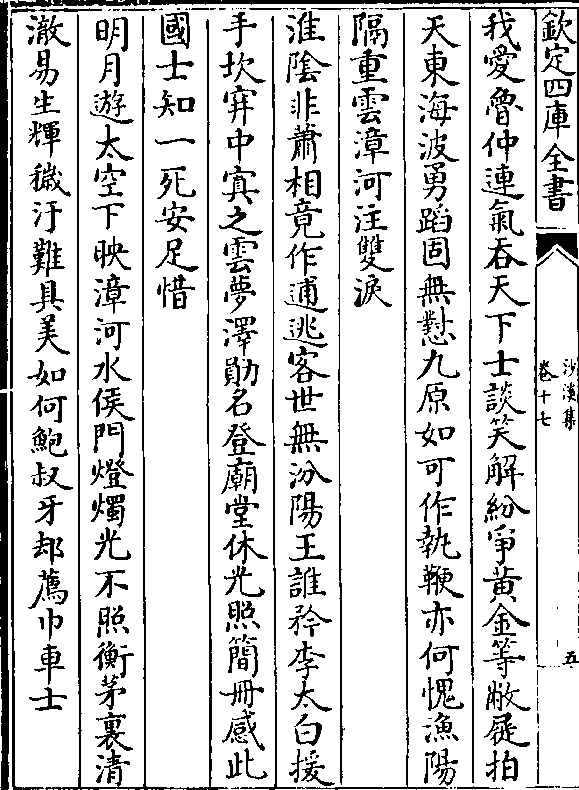 欽定四庫全書
沙溪集
卷十七
五
我愛魯仲連氣吞天下士談笑解紛爭黃金等敝屣拍
天東海波勇蹈固無懟九原如可作執鞭亦何愧漁陽
隔重雲漳河注雙淚
淮陰非蕭相竟作逋逃客世無汾陽王誰矜李太白援
手坎穽中寘之雲夢澤勛名登廟堂休光照簡冊感此
國士知一死安足惜
明月遊太空下映漳河水侯門燈燭光不照衡茅裏清
澈易生輝穢汙難具美如何鮑叔牙却薦巾車士